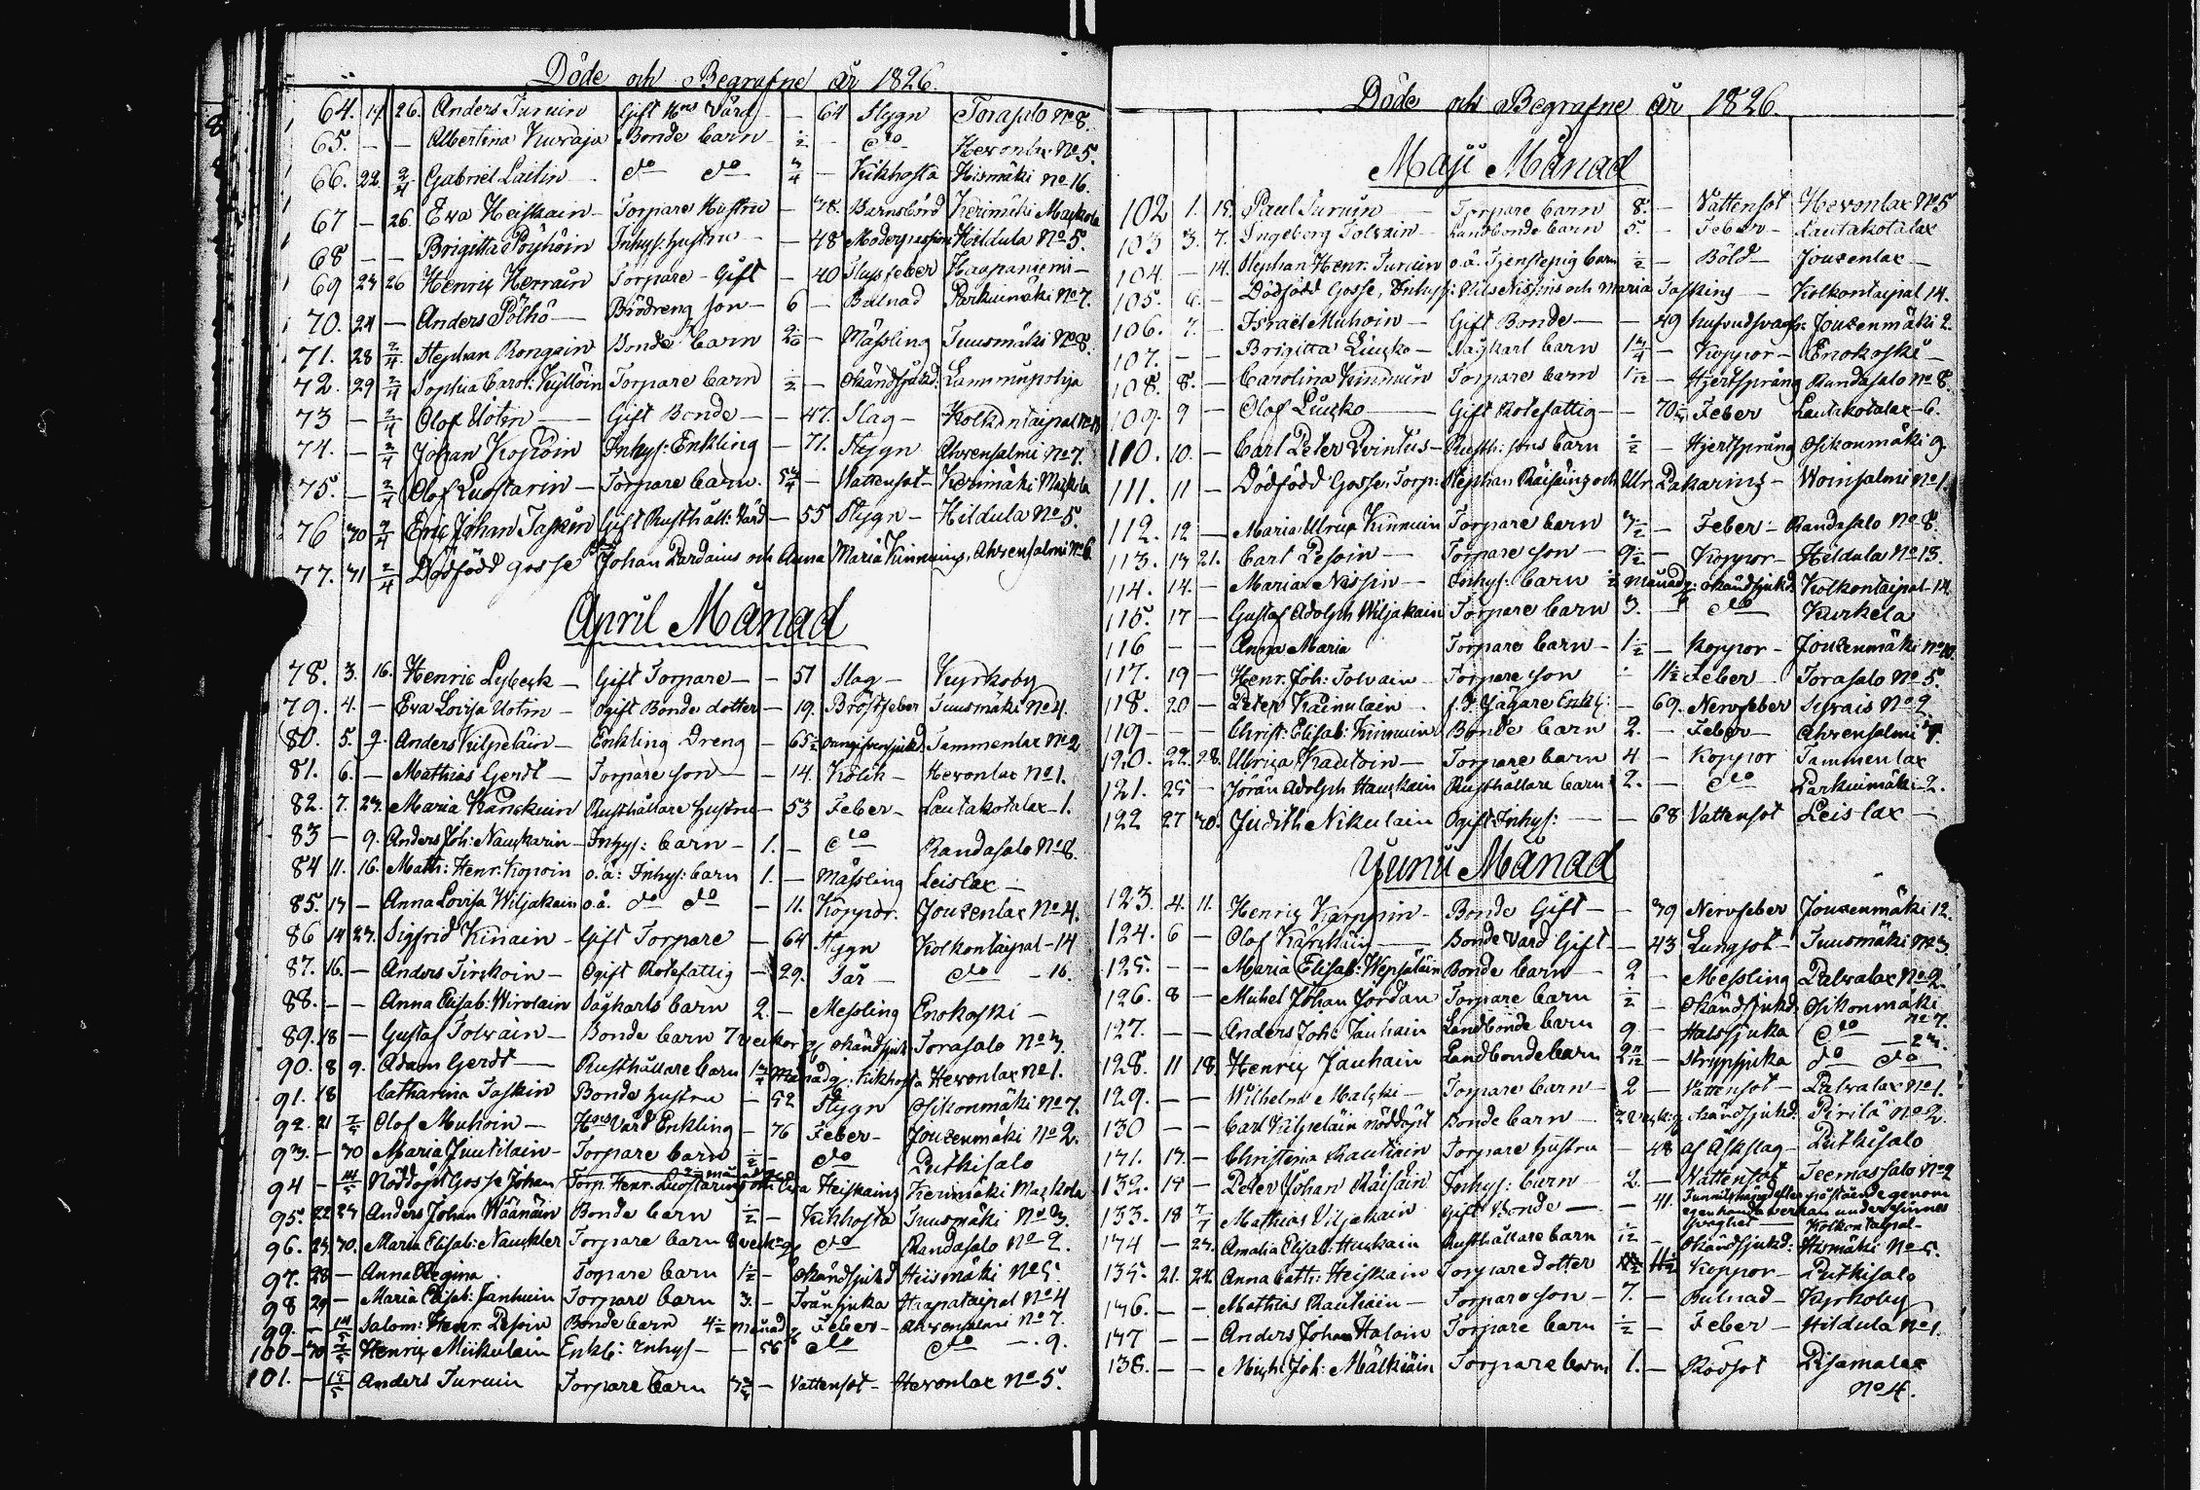 Döde och Begrafne år 1826.
64. 17 26. Anders Turuin Gift Hus Värd — 64 Stygn Torasalo No 8.
65. — — Albertina Kuvaja Bonde barn ½ — do Hevonlax No 5.
66. 22. 2/4 Gabriel Laitin do do ¾ — Kikhosta Hismäki No 16.
67 — 26. Eva Heiskain Torpare Hustru — 38. Barnsbörd Kerimäki Mackola
68 — — Brigitta Pöyhöin Inhys: hustru — 48 Moderpassion Hildula No 5.
69 23 26 Henric Herrain Torpare Gift — 40 Flussfeber Haapaniemi
70. 24 — Anders Pölhö Brödreng son 6 — Bulnad Parkuimäki No 7.
71. 28 2/4 Stephan Rongain Bonde barn — Mässling Tuusmäki No 8.
72. 29 2/4 Sophia Carol: Kyllöin Torpare barn ½ — Okändsjukd: Lamminpohja
73 — 2/4 Olof Uotin Gift Bonde — 47. Slag Kolkontaipal
74. — 2/4 Johan Kossöin Inhys: Enkling — 71. Stygn Ahvensalmi No 7.
75. — 2/4 Olof Luostarin Torpare barn 5¾ — Vattensot Kerimäki Mackola
76 30 2/4 Eric Johan Taskin Gift Rusthåll: Värd — 55 Stygn Hildula No 5.
77. 31 2/4 Dödfödd gosse Johan Pardains och Anna Maria Kinnuins, Ahvensalmi No 6
April Månad
78. 3. 16. Henric Lybeck Gift Torpare — 51 Slag Kyrkoby
79. 4. — Eva Lovisa Uotin Ogift Bonde dotter — 19. Bröstfeber Tuusmäki No 4.
80. 5. 9. Anders Kilpeläin Enkling Dreng — 65½ Oangifven sjukd. Tammenlax No 2
81. 6. — Mathias Gerdt Torpare son — 14. Kolik Hevonlax No 1.
82. 7. 23. Maria Känckuin Rusthållare hustru — 53 Feber Lautakotalax 1.
83 — 9. Anders Joh: Nauckarin Inhys: barn 1. — do Randasalo No 8.
84 11. 16. Math: Henr. Kopoin o.ä: Inhys: barn 1. — Mässling Leislax
85. 13 — Anna Lovisa Wiljakain o.ä. do do — 11. Koppor. Jouxenlax No 4.
86 14 23. Sigfrid Kinain Gift Torpare — 64 Stygn Kolkontaipal 14
87. 16. — Anders Tirckoin Ogift Rotefattig — 29. Sår do — 16.
88. — — Anna Elisab: Wirolain Dagkarls barn 2. — Messling Enokoski
89. 18 — Gustaf Tolvain Bonde barn 7 veckor Okändsjukd Torasalo No 3.
90. 8 9. Adam Gerdt Rusthållare barn Månad: Kikhosta Hevonlax No 1.
91. 18 Catharina Taskin Bonde hustru — 52 Stygn Osikonmäki No 7.
92. 21 7/5 Olof Muhoin Hus Värd Enkling — 76 Feber Jouxenmäki No 2.
93. — 30 Maria Juutilain Torpare barn ½ — do Putkisalo
94 — 14/5 Nöddöpt Gosse Johan Torp. Henr. Luostarins och Eva Heiskains Kerimäki Mackola
95. 22 23 Anders Johan Wäänäin Bonde barn ½ — Kikhosta Tuusmäki No 3.
96. 23 30. Maria Elisab: Nauckler Torpare barn 8 veckor do Randasalo No 2.
97. 28 — Anna Regina Torpare barn 1½ — Okändsjukd Hiismäki No 5.
98 29 — Maria Elisab: Janhuin Torpare barn 3. — Tränsjuka Haapataipal No 4
99. — 14/5 Salom: Henr. Pesoin Bonde barn 4½ Månad Feber Ahvensalmi No 7.
100 30 Henric Miikulain Enkl: Inhys — 56 do do — 9.
101. — 15/5 Anders Turuin Torpare barn — Vattensot Hevonlax No 5.
Döde och Begrafne år 1826.
Maji Månad
102 1. 15. Paul Turuin Torpare barn 8. — Vattensot Hevonlax No 5
103 3. 7. Ingeborg Tolvain Landbonde barn 5. — Feber Lautakotalax
104 — 14. Stephan Henr. Turuin o.ä. Tjenstepig barn ½ — Böld Jouxenlax
105. 6. — Dödfödd Gosse, Inhys: Nils Nissins och Maria Taskins Kolkontaipal 14.
106. 7. — Israel Muhoin Gift Bonde — 49 hufvudsvagh: Jouxenmäki 2.
107. — — Brigitta Liucko Dagkarl barn 1¾ — Koppor Enokoski
108. 8. — Carolina Kinnuin Torpare barn 1/12 — Hjertsprång Randasalo No 8.
109. 9 — Olof Liucko Gift Rotefattig — 70 Feber Lautakotalax 6.
110. 10. — Carl Peter Printus Rusth: sons barn ½ — Hjertsprång Osikonmäki 9.
111. 11 — Dödfödd Gosse, Torp: Stephan Räisäins och Ulr. Pakarins Woinsalmi No 1.
112. 12 — Maria Ulrica Kinnuin Torpare barn 3½ — Feber Randasalo No 8.
113. 13 21. Carl Pesoin Torpare son 9½ — Koppor Hildula No 13.
114. 14. — Maria Nissin Inhys: barn ½ Månad: Okändsjukd. Kolkontaipal 14.
115. 17 — Gustaf Adolph Wiljakain Torpare barn 3. — do Kurkela
116 — — Anna Maria Torpare barn 1½ — Koppor Jouxenmäki No 10.
117. 19 — Henr. Joh: Tolvain Torpare son — 11½ Feber Torasalo No 5.
118. 20 — Peter Kainulain f.d. Jägare Enkl: — 69. Nervfeber Juvais No 2
119 — — Christ: Elisab: Kinnuin Bonde barn 2. — Feber Ahvensalmi 7.
120. 22. 28. Ulrica Kautoin Torpare barn 4 — Koppor Tammenlax
121. 25 — Jöran Adolph Hauckain Rusthållare barn 2. — do Parkuimäki 2.
122 27 30. Judith Nikulain Ogift Inhys: — 68 Vattensot Leislax
Junii Månad
123. 4. 11. Henric Karppin Bonde Gift — 39 Nervfeber Jouxenmäki 12.
124. 6 — Olof Känckäin Bonde Värd Gift — 43 Lungsot Tuusmäki No 3.
125. — — Maria Elisab: Wepsäläin Bonde barn 2 — Messling Palvalax No 2.
126. 8 — Michel Johan Jordan Torpare barn ½ — Okändsjukd. Osikonmäki No 7.
127. — — Anders Joh: Jauhain Landbonde barn 9. — Halssjuka do — 23.
128. 11 18 Henric Jauhain Landbonde barn — Strypsjuka do do
129. — — Wilhelm Malcki Torpare barn 2 — Vattensot Palvalax No 1.
130 — — Carl Kilpeläin nöddöpt Bonde barn Okändsjukd: Pirilä No 2.
131. 13. — Christina Rautiain Torpare hustru — 48 af Åskslag Putkisalo
132. 15 — Peter Johan Räisäin Inhys: barn 2. — Vattensot Teemassalo No 2
133. 18 7/7 Mathias Viljakain Gift Bonde — 41. egenhanda verkan under sinnes svaghet Kolkontaipal
134 — 23. Amalia Elisab: Hauckain Rusthållare barn 1/12 — Okändsjukd: Hismäki No 5.
135. 21. 24. Anna Cath: Heiskain Torpare dotter Koppor Putkisalo
136. — — Mathias Rautiain Torpare son 7. — Bulnad Kyrkoby
137 — — Anders Johan Haloin Torpare barn ½ — Feber Hildula No 1.
138. — — Mich: Joh: Mälkiäin Torpare barn 1. — Rödsot Pisamalax No 4.